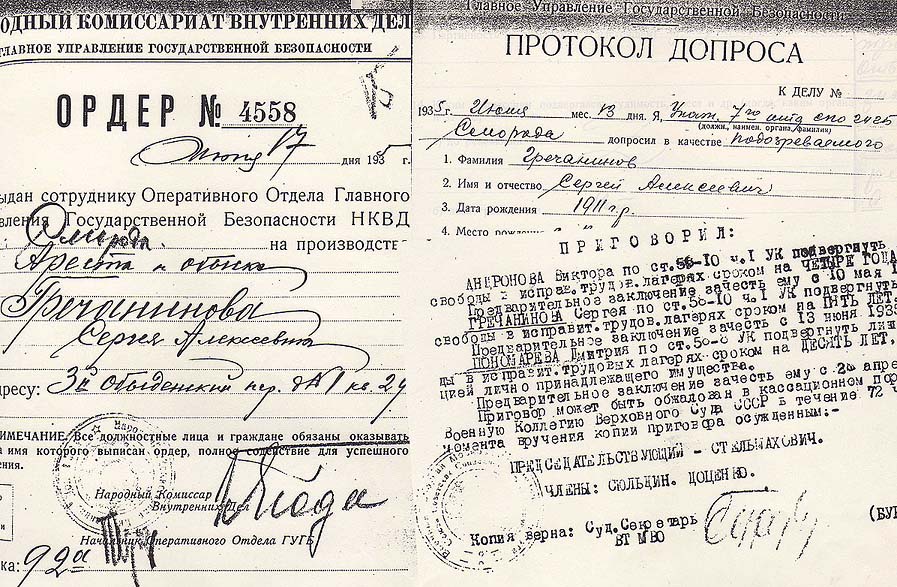 РОДНЫЙ КОМИССАРИАТ ВНУТРЕННИХ ДЕЛ
ГЛАВНОЕ УПРАВЛЕНИЕ ГОСУДАРСТВЕННОЙ БЕЗОПАСНОСТИ
ОРДЕР № 4558
Июня 17 дня 1935 г.
ыдан сотруднику Оперативного Отдела Главного
вления Государственной Безопасности НКВД
на производств
Ареста и обыска
Гречанинова
Сергея Алексеевича
дресу: 3й Обыденский пер. д № 1 кв 24
ИМЕЧАНИЕ. Все должностные лица и граждане обязаны оказывать
а имя которого выписан ордер, полное содействие для успешного
ения.
Народный Комиссар
Внутренних Дел
Начальник Оперативного Отдела ГУГБ
ка: 92а
Главное Управление Государственной Безопасности
ПРОТОКОЛ ДОПРОСА
К ДЕЛУ №
1935 г. Июня мес. 13 дня. Я, 7го СПО ГУГБ
(должн., наимен. органа, фамилия)
допросил в качестве подозреваемого
1. Фамилия Гречанинов
2. Имя и отчество Сергей Алексеевич
3. Дата рождения 1911 г.р.
4. Место рожден
ПРИГОВОРИЛ:
АНДРОНОВА Виктора по ст.58-10 ч.I УК подвергнуть
свободы в исправ.трудов.лагерях сроком на ЧЕТЫРЕ ГОДА
Предварительное заключение зачесть ему с 10 мая 1
ГРЕЧАНИНОВА Сергея по ст.58-10 ч.I УК подвергнуть
свободы в исправит.трудов.лагерях сроком на ПЯТЬ ЛЕТ.
Предварительное заключение зачесть с 13 июня 1935
ПОНОМАРЕВА Дмитрия по ст.58-8 УК подвергнуть лиш
ды в исправит.трудовых лагерях сроком на ДЕСЯТЬ ЛЕТ,
цией лично принадлежащего имущества.
Предварительное заключение зачесть ему с 2 апре
Приговор может быть обжалован в кассационном пор
Военную Коллегию Верховного Суда СССР в течение 72 ч
момента вручения копии приговора осужденным.-
ПРЕДСЕДАТЕЛЬСТВУЮЩИЙ - СТЕЛЬМАХОВИЧ.
ЧЛЕНЫ: СЮЛЬДИН. ДОЦЕНКО.
Копия верна: Суд.Секретарь
ВТ МВО
(БУР